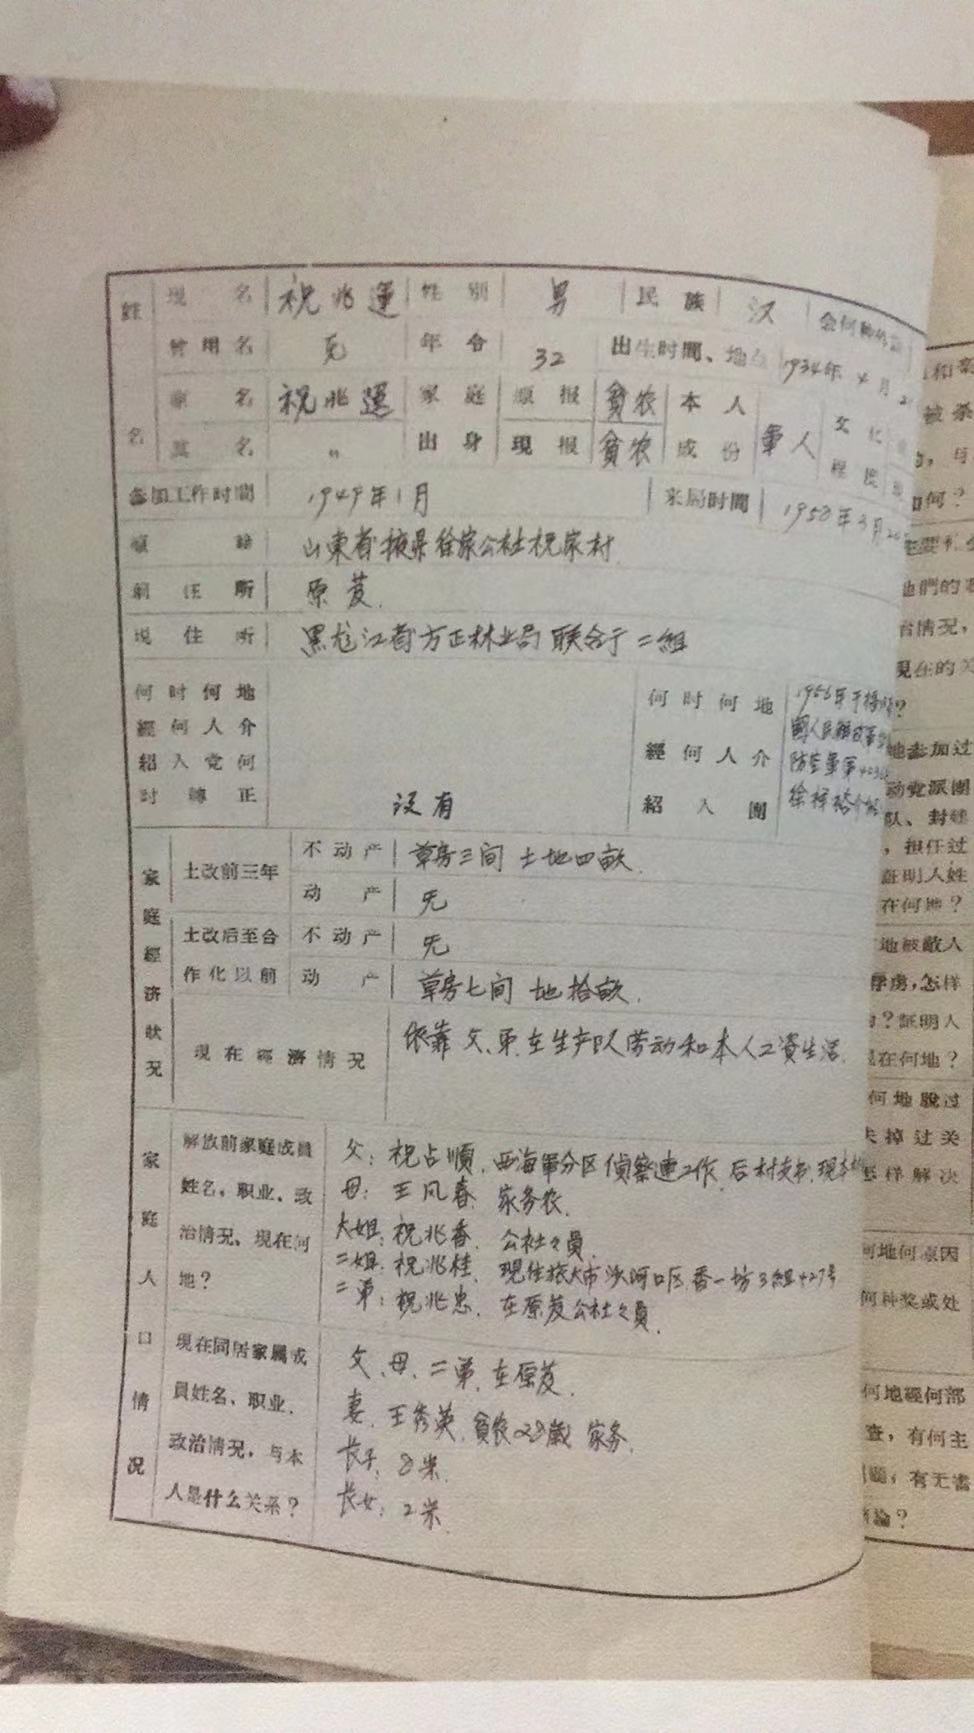 姓 現名 祝兆運 性別 男 民族 汉
曾用名 无 年令 32 出生时間、地 1934年4月2
原名 祝兆運 家庭 原报 貧农 本人 軍人 文化
名 真名 〃 出身 現报 貧农 成份 程度
参加工作时間 1949年1月 来局时間 1958年3月
山東省掖县徐家公社祝家村
前住所 原籍.
現住所 黑龙江省方正林业局联合厂二組
何时何地 何时何地 1956年于
經何人介 經何人介 國人民解放軍
紹入党何 防空軍
时轉正 没有 紹入團 徐
家庭經济狀况
土改前三年 不动产 草房三间 土地四畝.
动产 无
土改后至合 不动产 无
作化以前 动产 草房七间 地拾畝.
現在經濟情况 依靠父、弟在生产队劳动和本人工資生活.
家庭人口情况
解放前家庭成員 父: 祝占順. 西海軍分区偵察連工作. 后村支书. 現在
姓名，职业、政 母: 王凤春 家务农.
治情况、現在何 大姐: 祝兆香. 公社々員.
地？ 二姐: 祝兆桂. 現住旅大市沙河口区香一坊3組427号
二弟: 祝兆忠. 在原籍公社々員.
現在同居家屬成 父、母、二弟、在原籍.
員姓名、职业、 妻. 王秀英. 貧农28歲 家务.
政治情况，与本 长子: 8岁.
人是什么关系？ 长女: 2岁.
被杀
如何？
他們的
治情况，
現在的关
地参加过
动党派團
队、封建
，担任过
証明人姓
在何地？
地被敌人
俘虏，怎样
？証明人
現在何地？
何地脫过
失掉过关
怎样解决
何地何原因
何种奖或处
何地經何部
查，有何主
題，有无書
結論？